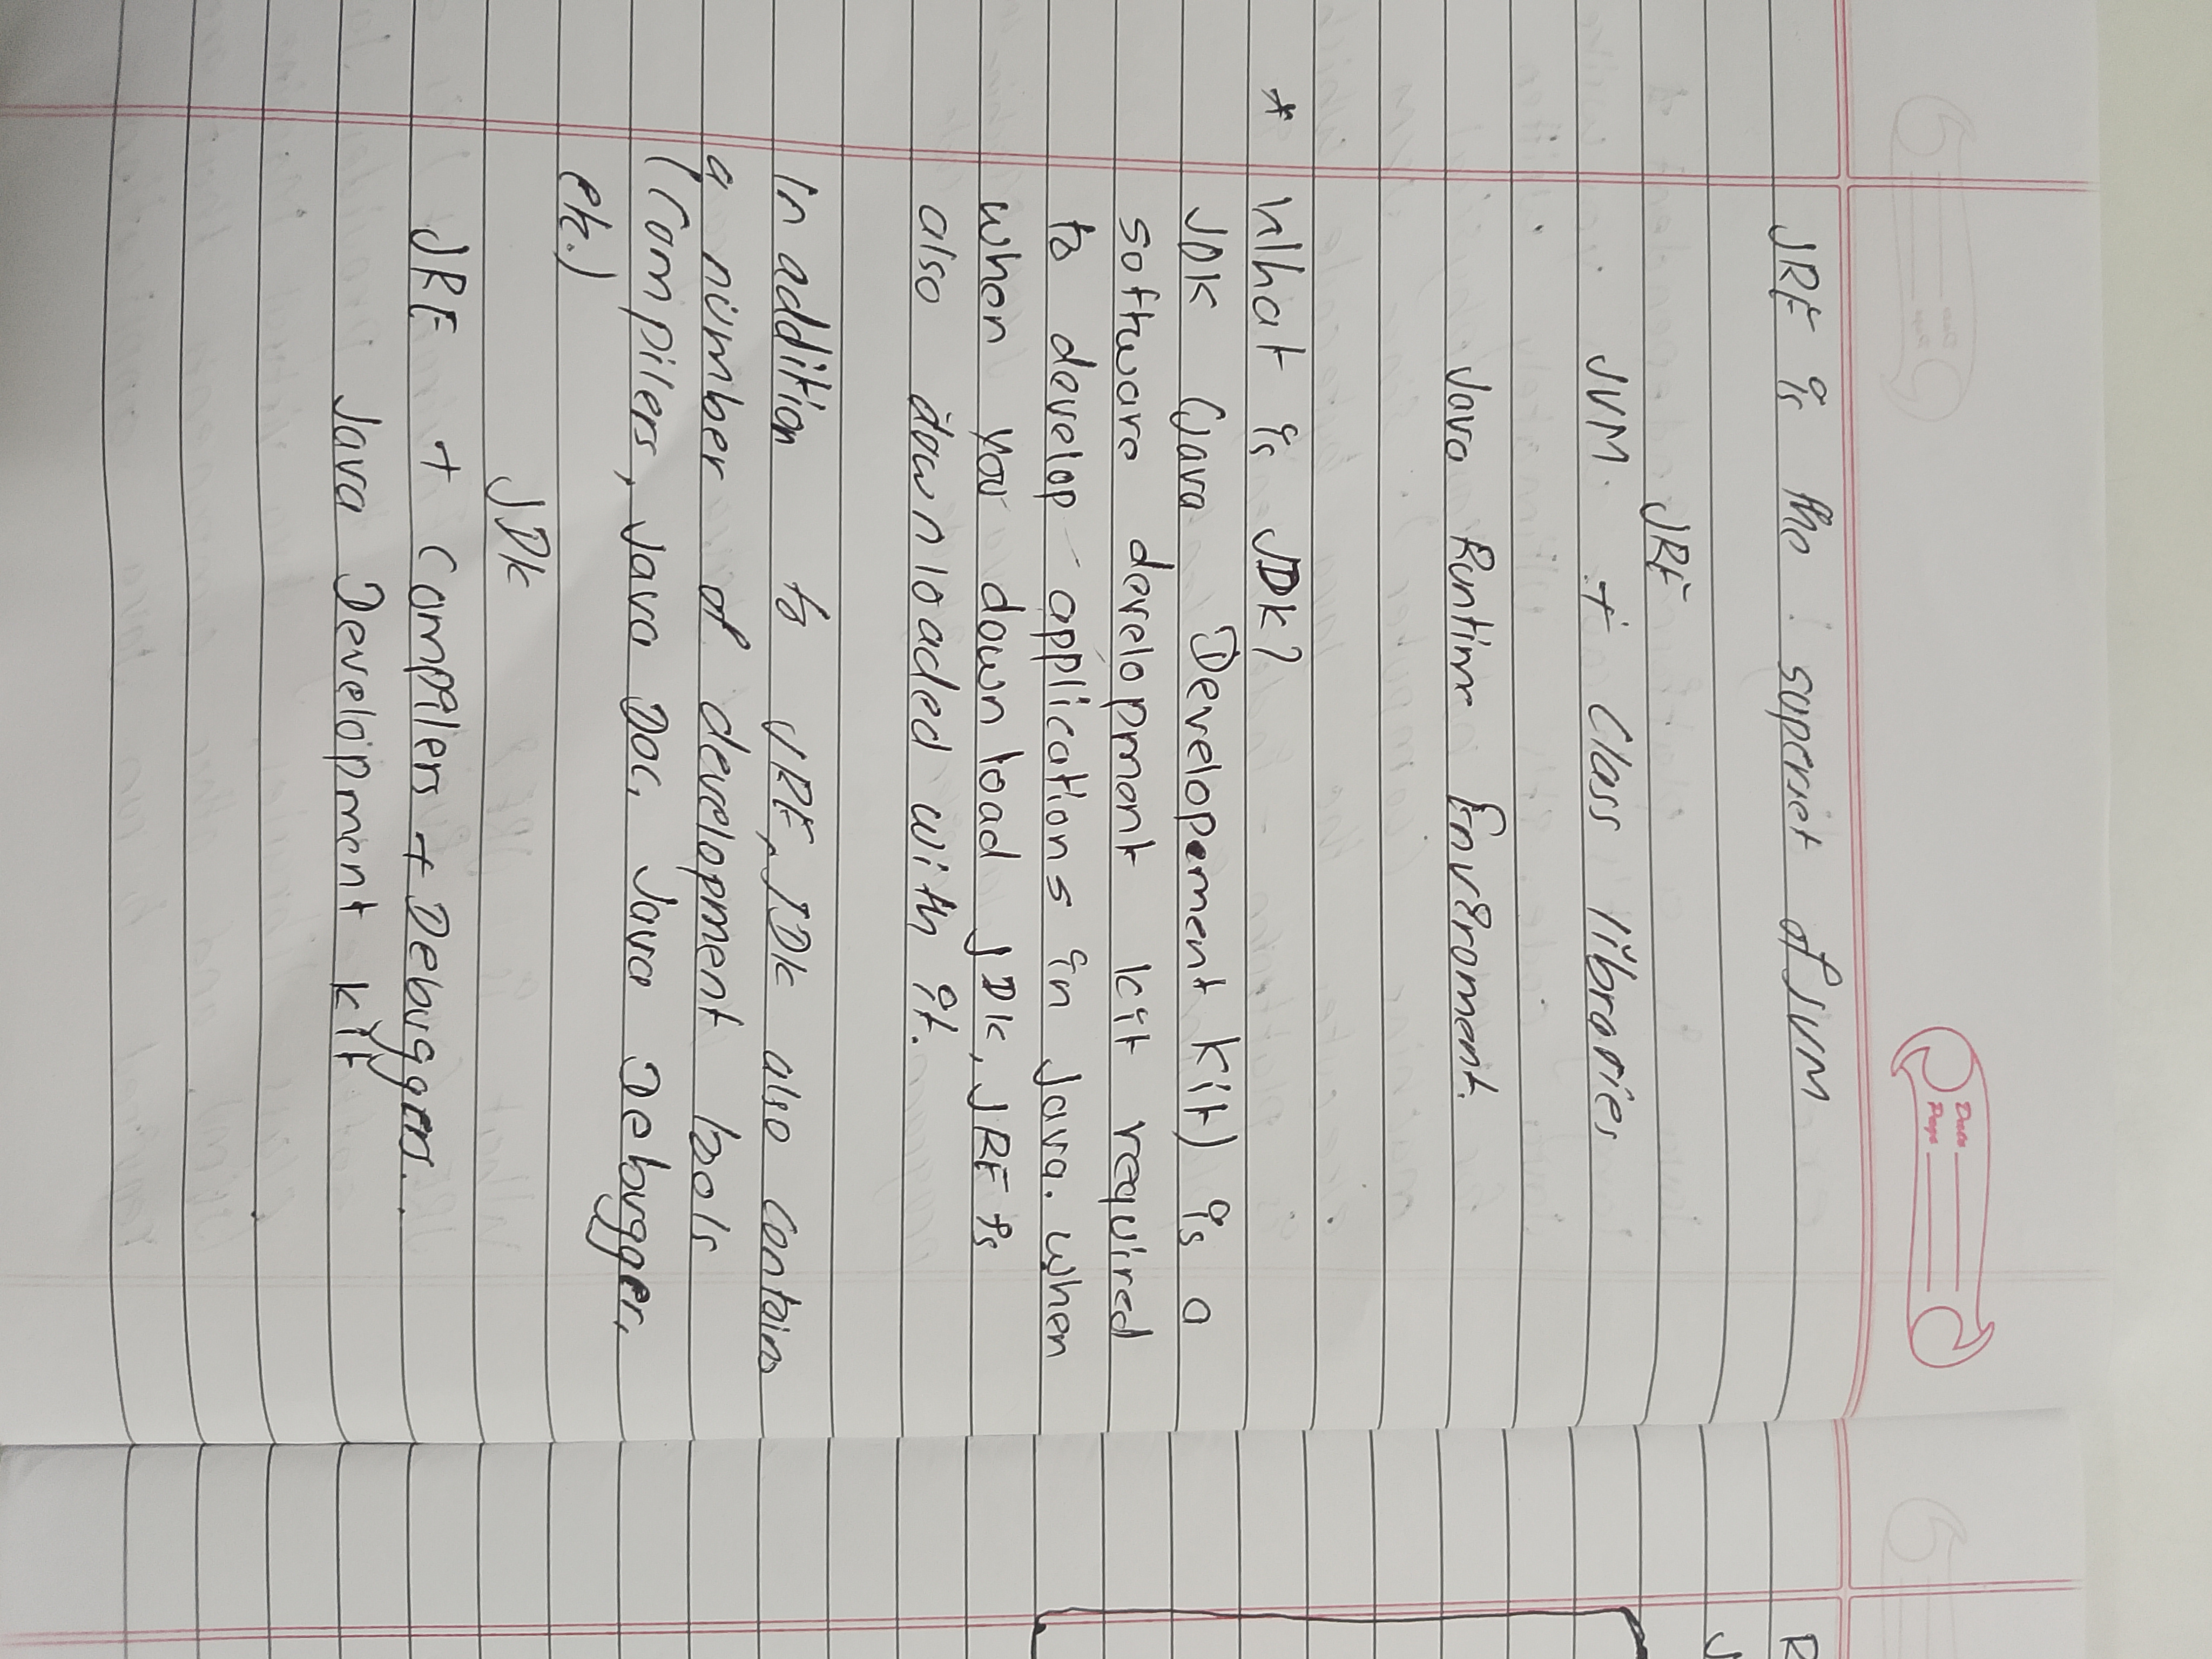 Date
Page
JRE is the superset of JVM
JRE
JVM + Class libraries
Java Runtime Environment.
* What is JDK?
JDK (Java Development Kit) is a
software development kit required
to develop applications in Java. when
when you download JDK, JRE is
also downloaded with it.
In addition to JRE, JDK also contains
a number of development tools
(compilers, Java Doc, Java Debugger,
etc.)
JDK
JRE + Compilers + Debuggers.
Java Development kit
R
J